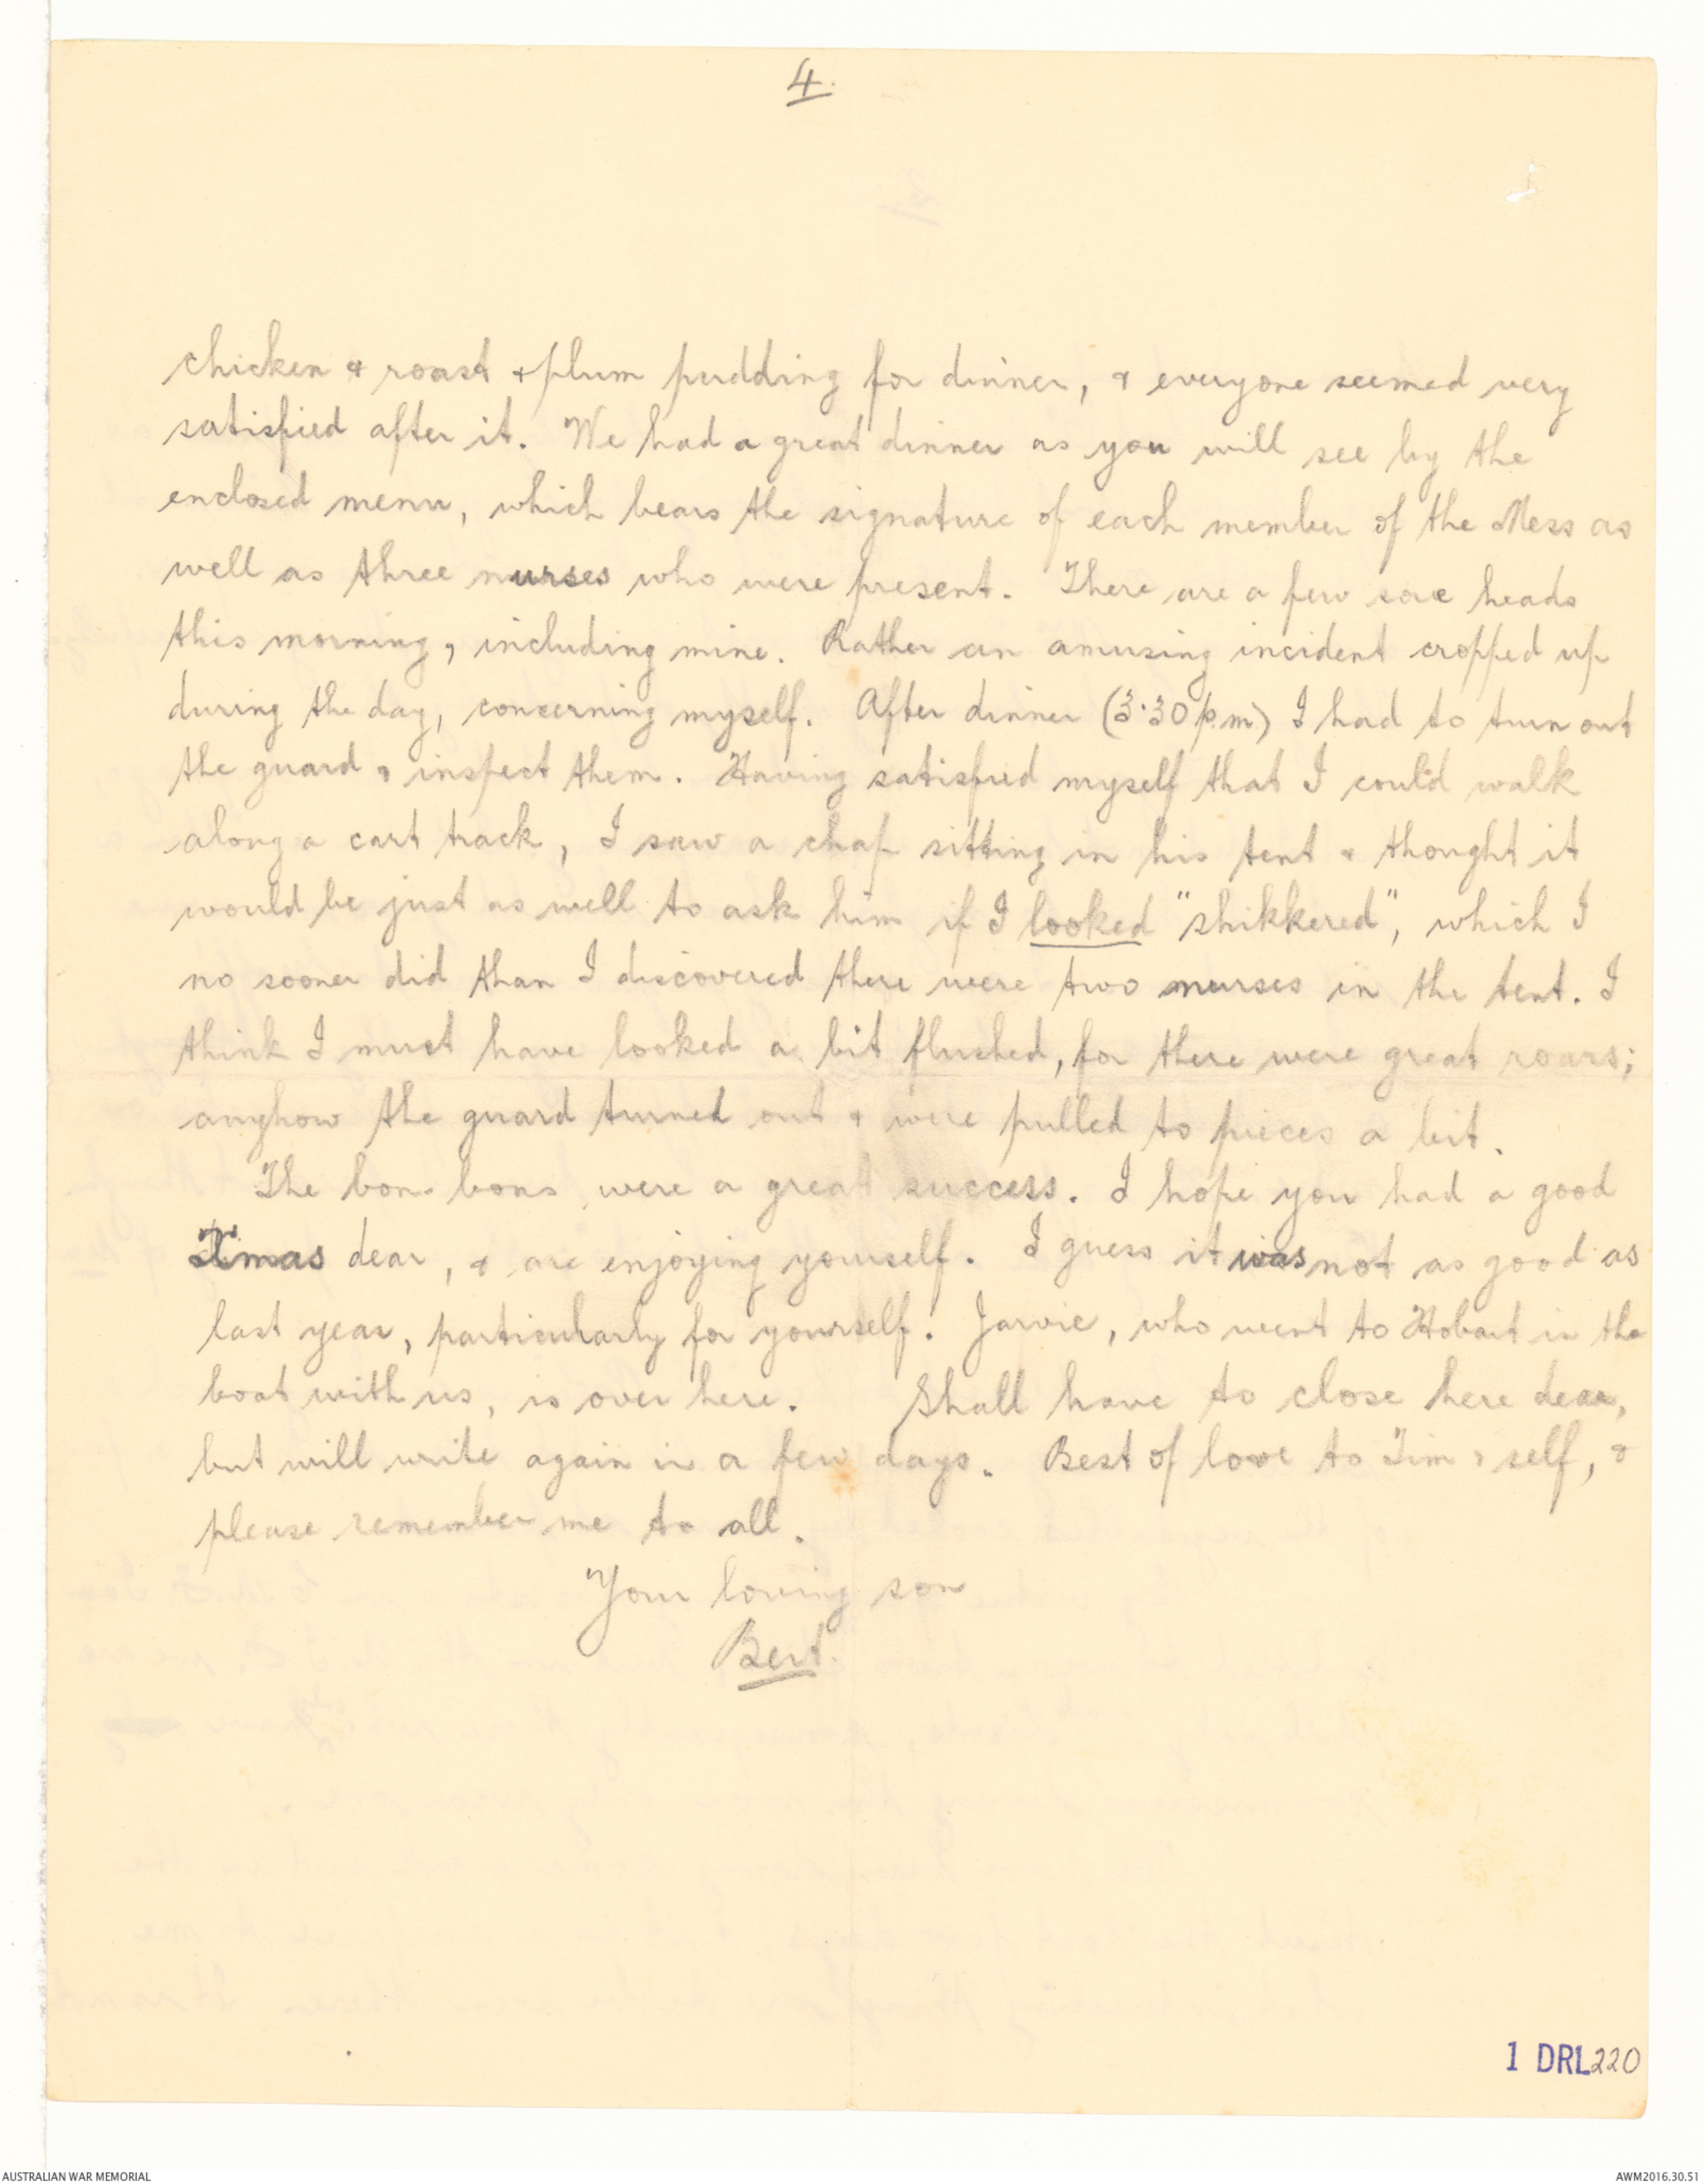 4.
chicken & roast & plum pudding for dinner, & everyone seemed very
satisfied after it. We had a great dinner as you will see by the
enclosed menu, which bears the signature of each member of the Mess as
well as three nurses who were present. There are a few sore heads
this morning, including mine. Rather an amusing incident cropped up
during the day, concerning myself. After dinner (3.30 p.m) I had to turn out
the guard & inspect them. Having satisfied myself that I could walk
along a cart track, I saw a chap sitting in his tent & thought it
would be just as well to ask him if I looked "shikkered", which I
no sooner did than I discovered there were two nurses in the tent. I
think I must have looked a bit flushed, for there were great roars;
anyhow the guard turned out & were pulled to pieces a bit.
The bon-bons were a great success. I hope you had a good
Xmas dear, & are enjoying yourself. I guess it was not as good as
last year, particularly for yourself. Jarvie, who went to Hobart in the
boat with us, is over here. Shall have to close here dear,
but will write again in a few days. Best of love to Tim & self, &
please remember me to all.
Your loving son
Bert.
1 DRL 220
AUSTRALIAN WAR MEMORIAL
AWM2016.30.51